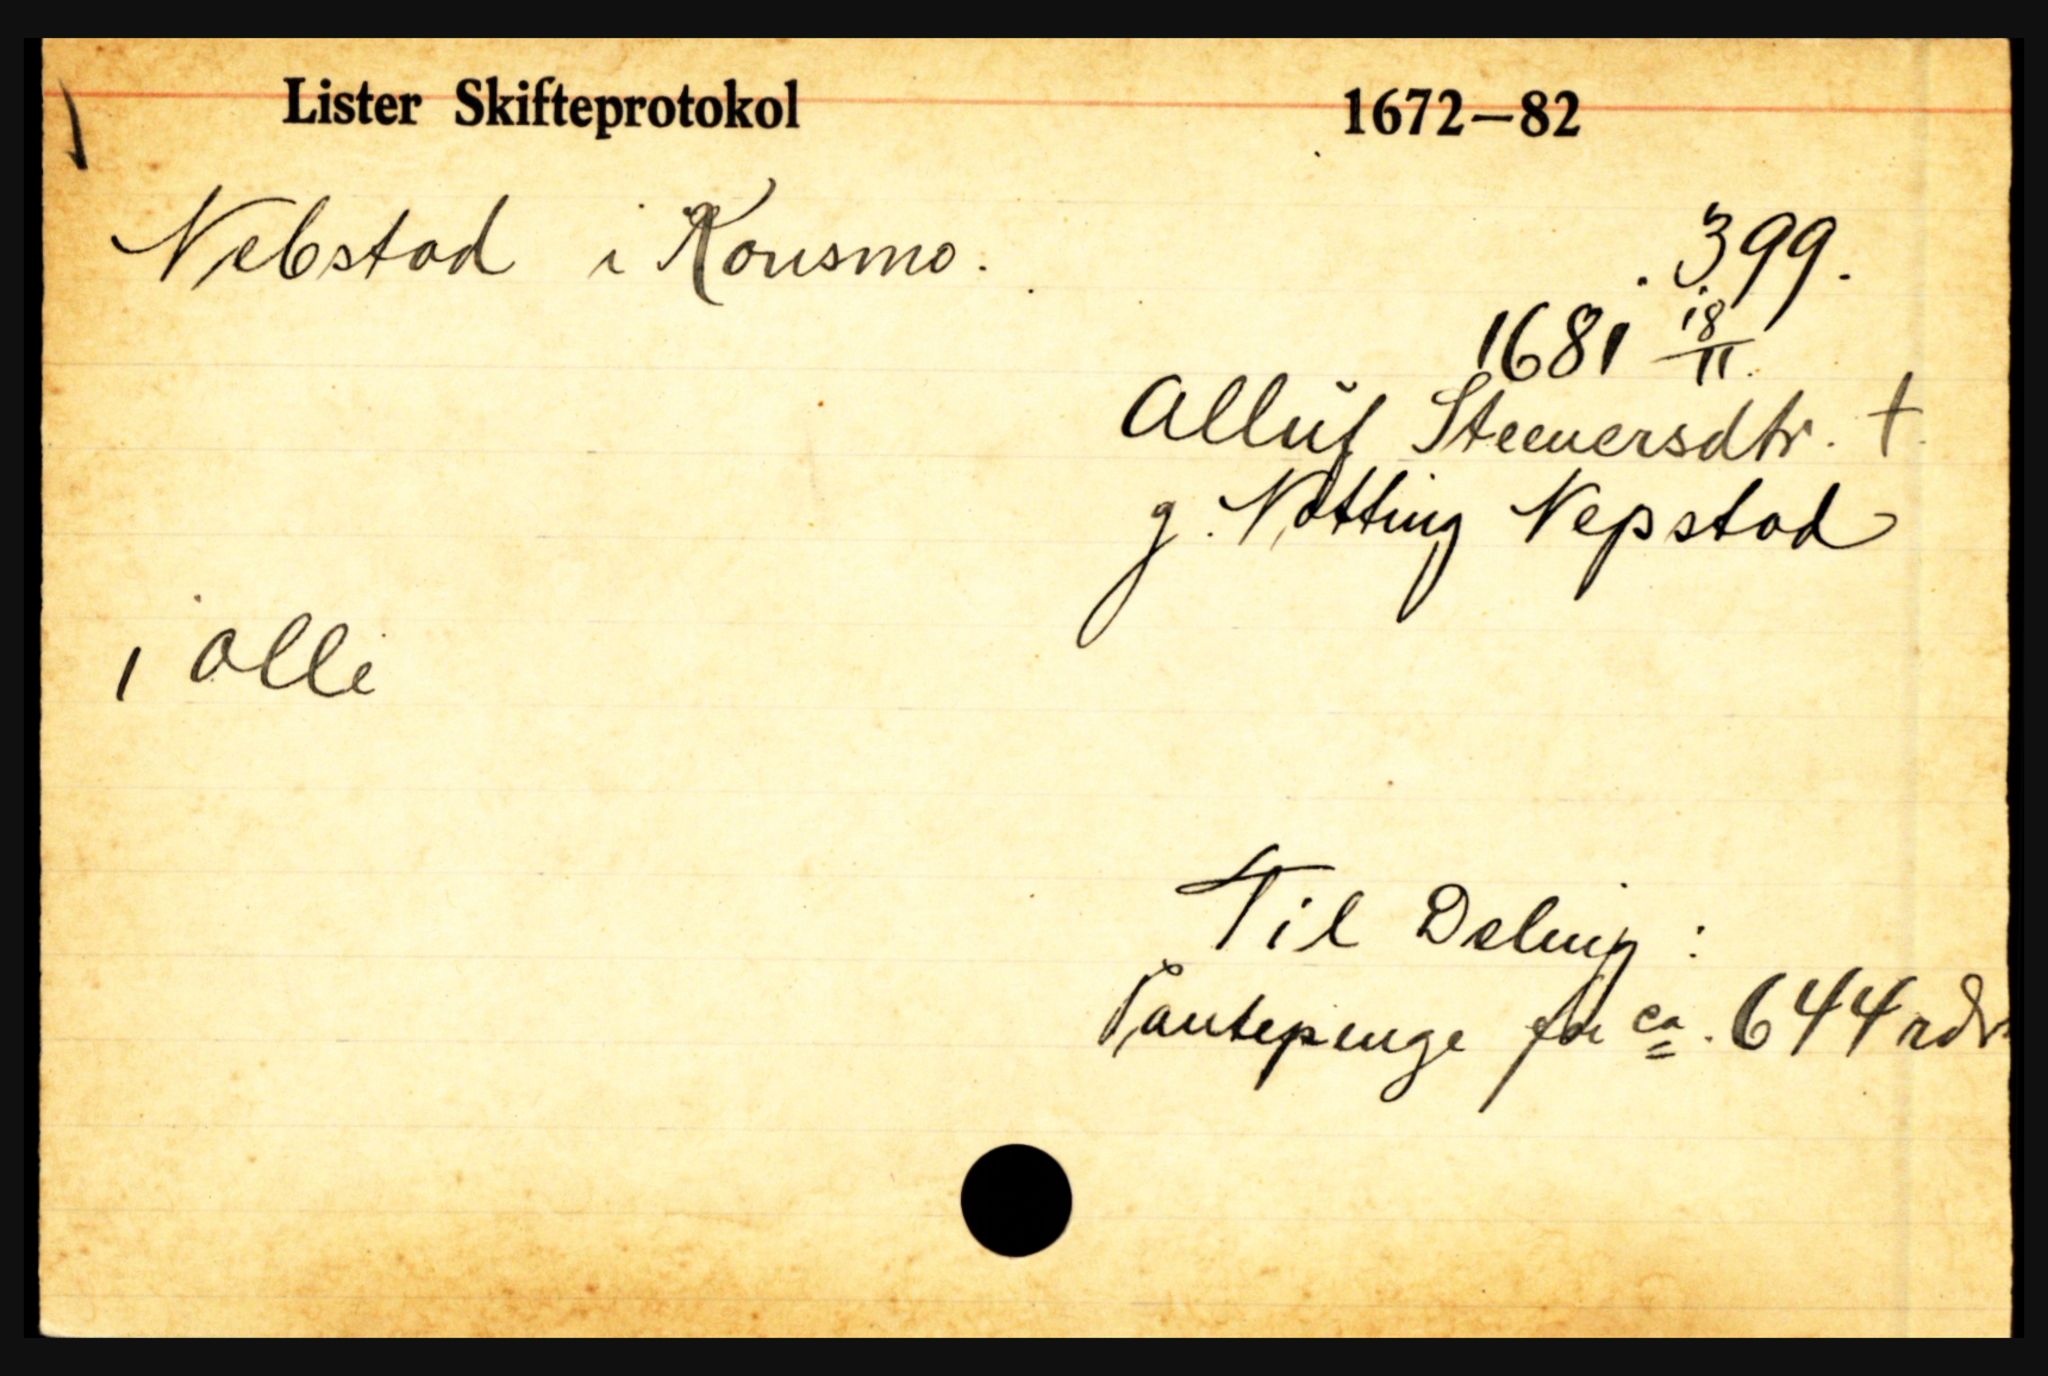 Lister Skifteprotokol 1672—82
Nebstad i Konsmo. 399.
1681 18/11.
Allŭf Steenersdtr. †.
g. Notting Nepstad
1 Olli
Til Deling:
Pantepenge for ca. 644 rdr